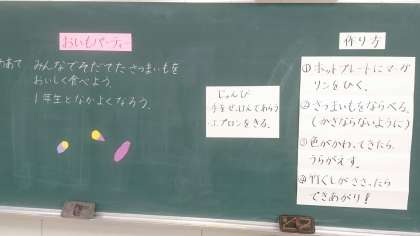 おいもパーティー
めあて みんなでそだてたさつまいもを
おいしく食べよう。
1年生となかよくなろう。
じゅんび
・手をせっけんであらう
・エプロンをきる。
作り方
①ホットプレートにマーガ
リンをひく。
②さつまいもをならべる。
(かさならないように)
③色がかわってきたら
うらがえす。
④竹ぐしがささったら
できあがり!